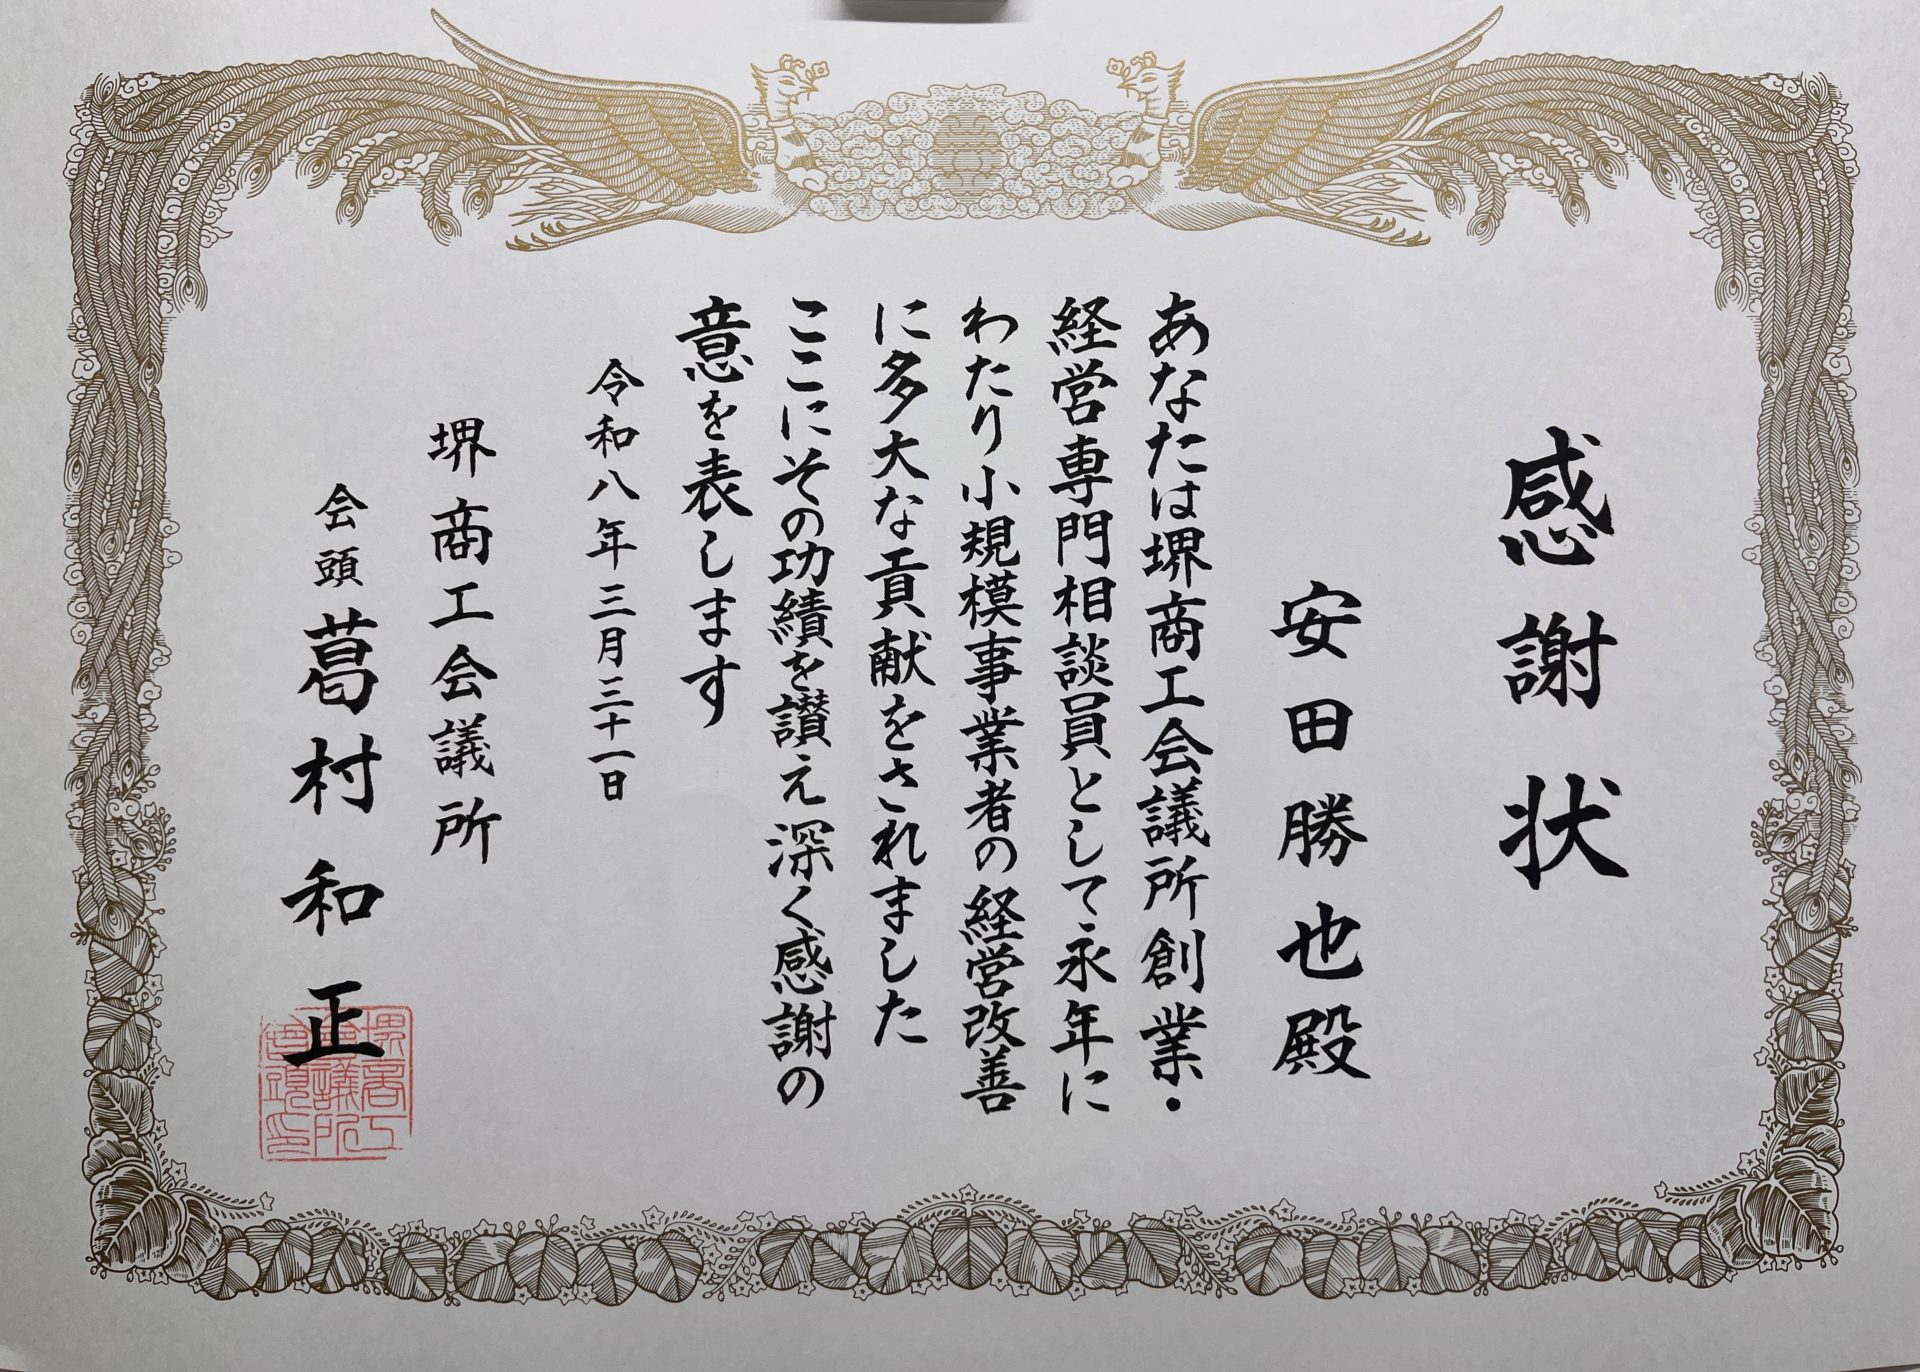 感謝状
安田勝也殿
あなたは堺商工会議所創業・
経営専門相談員として永年に
わたり小規模事業者の経営改善
に多大な貢献をされました
ここにその功績を讃え深く感謝の
意を表します
令和八年三月三十一日
堺商工会議所
会頭 葛村和正
堺商工
会議所
会頭印